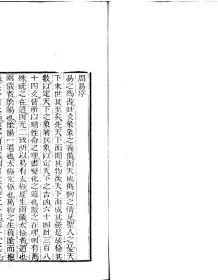 周易序
易之為書卦爻彖象之義備而天地萬物之情見聖人之憂天
下來世其至矣先天下而開其物後天下而成其務是故極其
數以定天下之象著其象以定天下之吉凶六十四卦三百八
十四爻皆所以順性命之理盡變化之道也散之在理則有萬
殊統之在道則无二致所以易有太極是生兩儀太極者道也
兩儀者陰陽也陰陽一道也太極无極也萬物之生負陰而抱